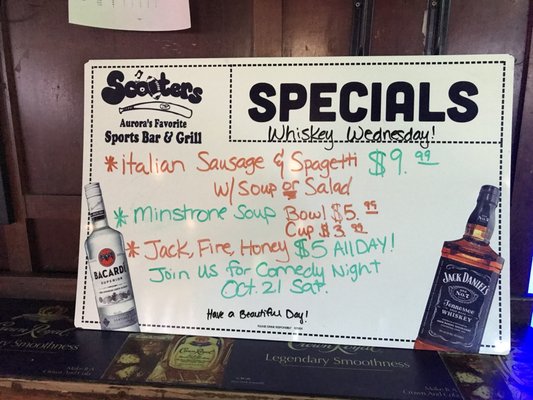 Scooters
Aurora's Favorite
Sports Bar & Grill
SPECIALS
Whiskey Wednesday!
*Italian Sausage & Spagetti $9.99
w/ Soup or Salad
*Minstrone Soup Bowl $5.95
Cup $3.95
*Jack, Fire, Honey $5 All DAY!
Join Us for Comedy Night
Oct. 21 Sat.
Have a Beautiful Day!
BACARDI
SUPERIOR
JACK DANIEL'S
Tennessee
WHISKEY
PLEASE DRINK RESPONSIBLY
Crown Royal
Legendary Smoothness